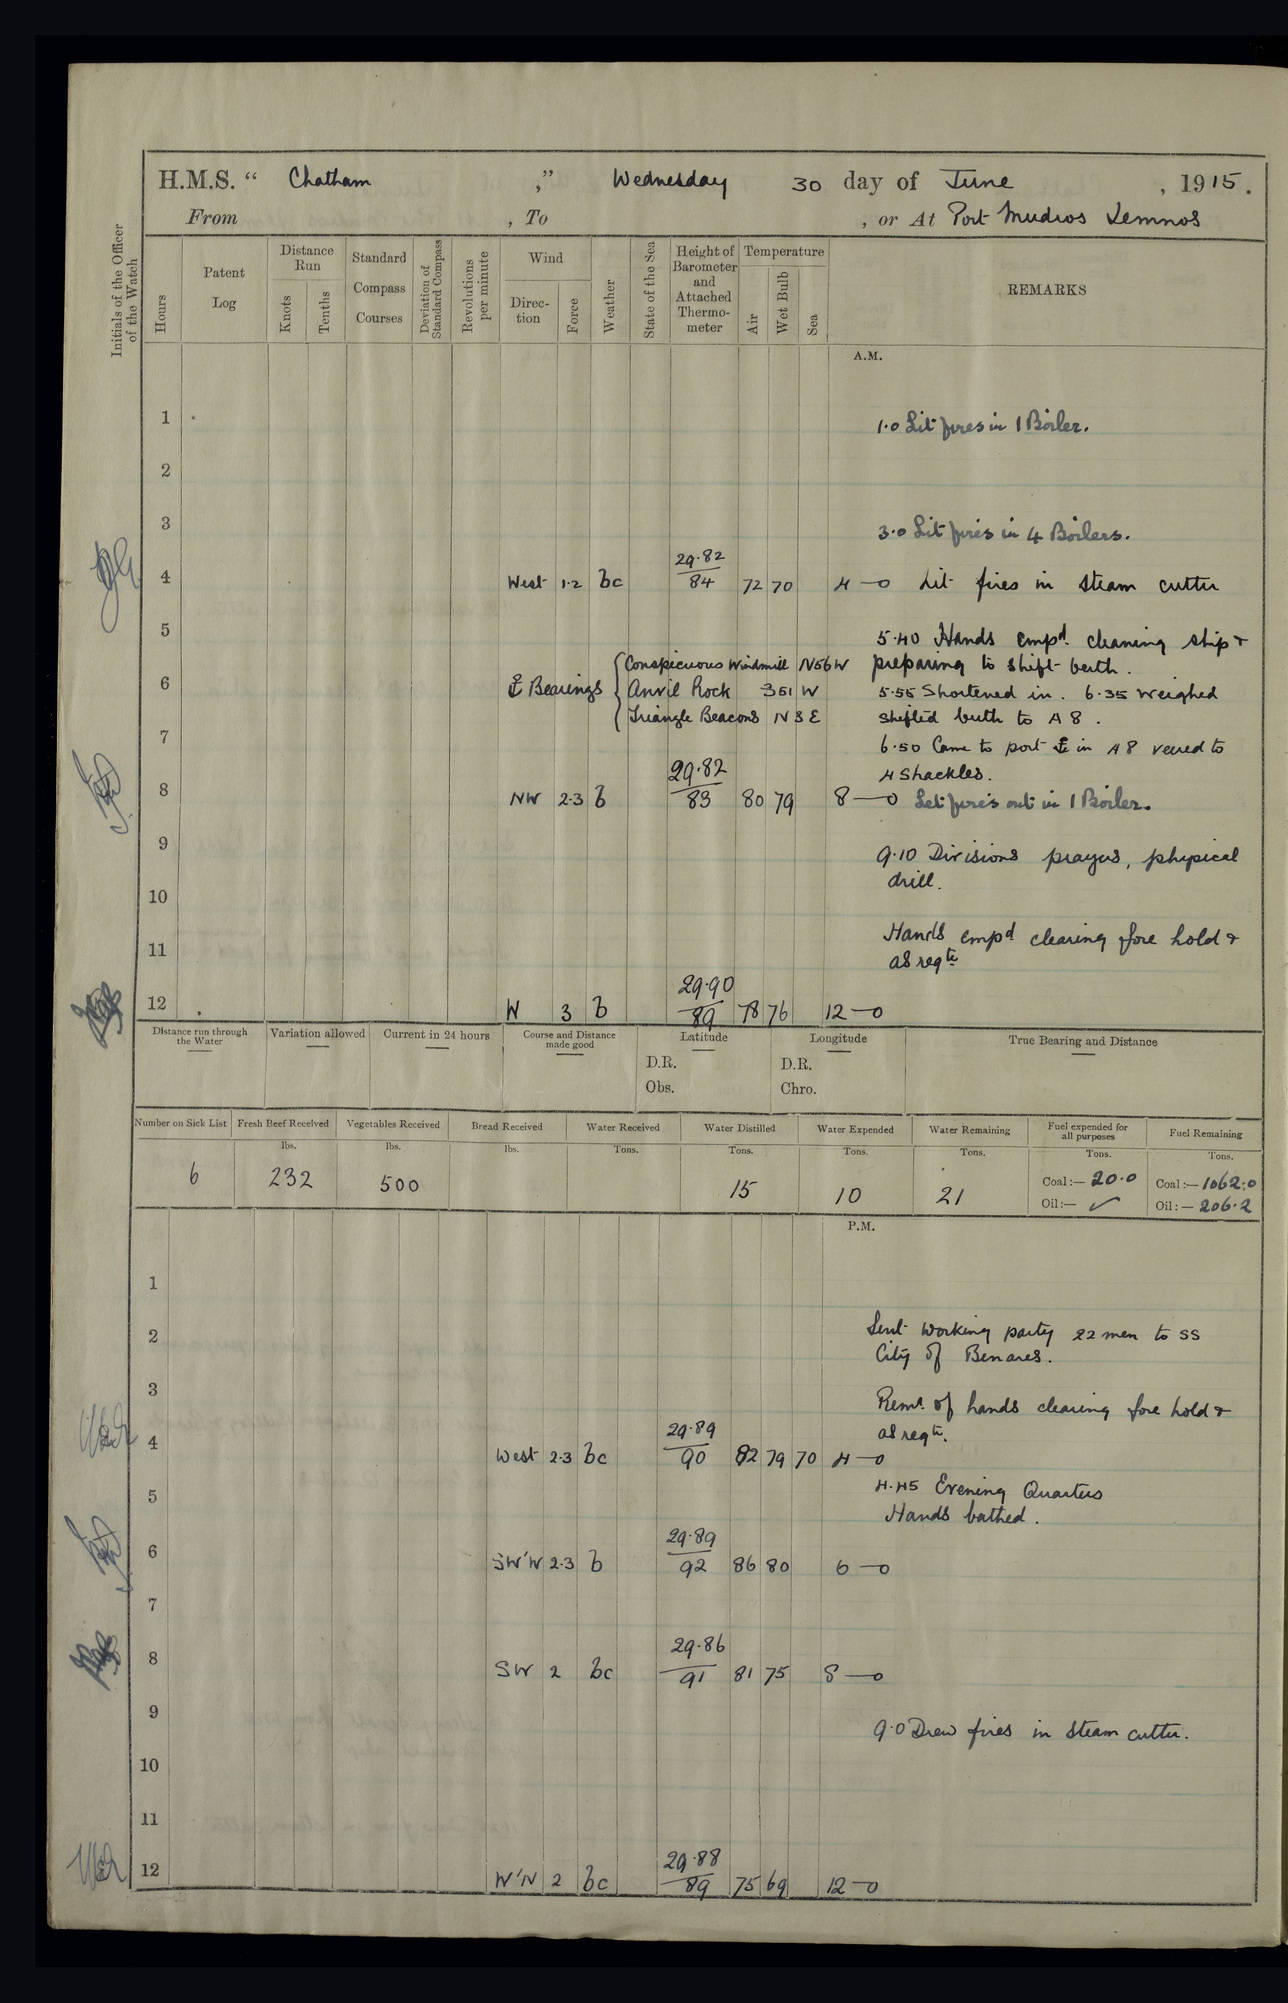 H.M.S. “ Chatham ,” Wednesday 30 day of June , 1915.
From , To , or At Port Mudros Lemnos
Initials of the Officer of the Watch
Hours
Patent Log
Distance Run
Knots
Tenths
Standard Compass Courses
Deviation of Standard Compass
Revolutions per minute
Wind
Direc-tion
Force
Weather
State of the Sea
Height of Barometer and Attached Thermo-meter
Temperature
Air
Wet Bulb
Sea
REMARKS
A.M.
1 1.0 Lit fires in 1 Boiler.
2
3 3.0 Lit fires in 4 Boilers.
29.82
4 West 1.2 bc 84 72 70 4—0 Lit fires in steam cutter
5 5.40 Hands empd. cleaning ship &
Conspicuous Windmill N56W preparing to shift berth.
6 Bearings Anvil Rock S51W 5.55 Shortened in. 6.35 Weighed
Triangle Beacons N3E shifted berth to A8.
7 6.50 Came to port ⚓ in A8 veered to
29.82 4 shackles.
8 NW 2.3 b 83 80 79 8—0 Let fires out in 1 Boiler.
9 9.10 Divisions prayers, physical
drill.
10
Hands empd clearing fore hold &
11 as reqte
29.90
12 W 3 b 89 78 76 12—0
Distance run through the Water
Variation allowed
Current in 24 hours
Course and Distance made good
Latitude
D.R.
Obs.
Longitude
D.R.
Chro.
True Bearing and Distance
Number on Sick List Fresh Beef Received Vegetables Received Bread Received Water Received Water Distilled Water Expended Water Remaining Fuel expended for all purposes Fuel Remaining
lbs. lbs. lbs. Tons. Tons. Tons. Tons. Tons. Tons.
6 232 500 15 10 21 Coal:— 20.0 Coal:— 1062.0
Oil:— ✓ Oil:— 206.2
P.M.
1
2 Sent working party 22 men to SS
City of Benares.
3 Remr. of hands clearing fore hold &
29.89 as reqte.
4 West 2.3 bc 90 82 79 70 4—0
5 4.45 Evening Quarters
Hands bathed.
29.89
6 SW'W 2.3 b 92 86 80 6—0
7
29.86
8 SW 2 bc 91 81 75 8—0
9 9.0 Drew fires in steam cutter.
10
11
29.88
12 W'N 2 bc 89 75 69 12—0